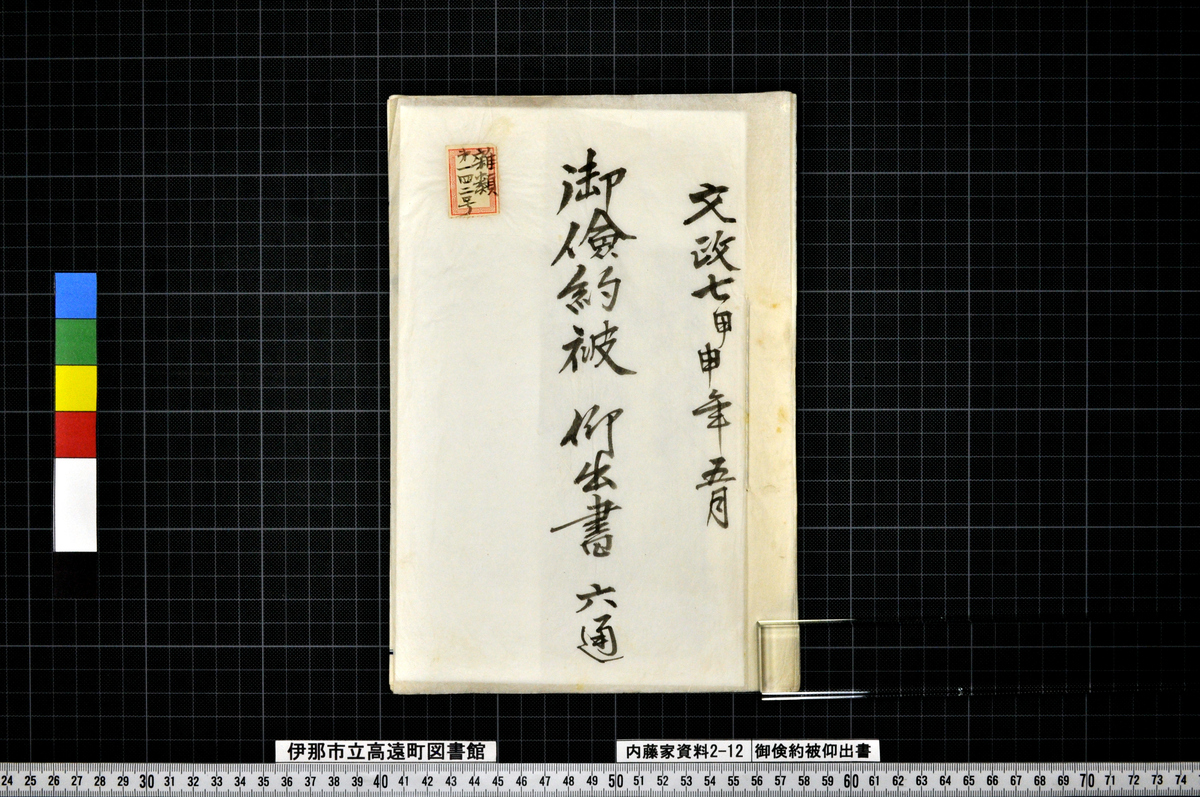 文政七甲申年五月
御儉約被 仰出書 六通
雜類
第一四二号
伊那市立高遠町図書館
内藤家資料2-12 御倹約被仰出書
24 25 26 27 28 29 30 31 32 33 34 35 36 37 38 39 40 41 42 43 44 45 46 47 48 49 50 51 52 53 54 55 56 57 58 59 60 61 62 63 64 65 66 67 68 69 70 71 72 73 74